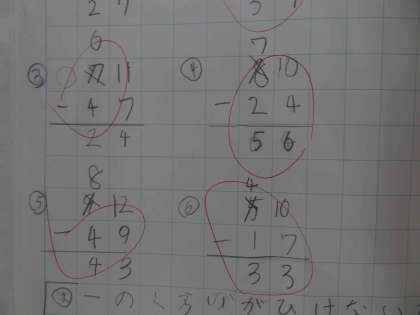 2 7
6
③ 7 11
− 4 7
2 4
7
④ 8 10
− 2 4
5 6
8
⑤ 9 12
− 4 9
4 3
4
⑥ 5 10
− 1 7
3 3
一のくらいがひけない